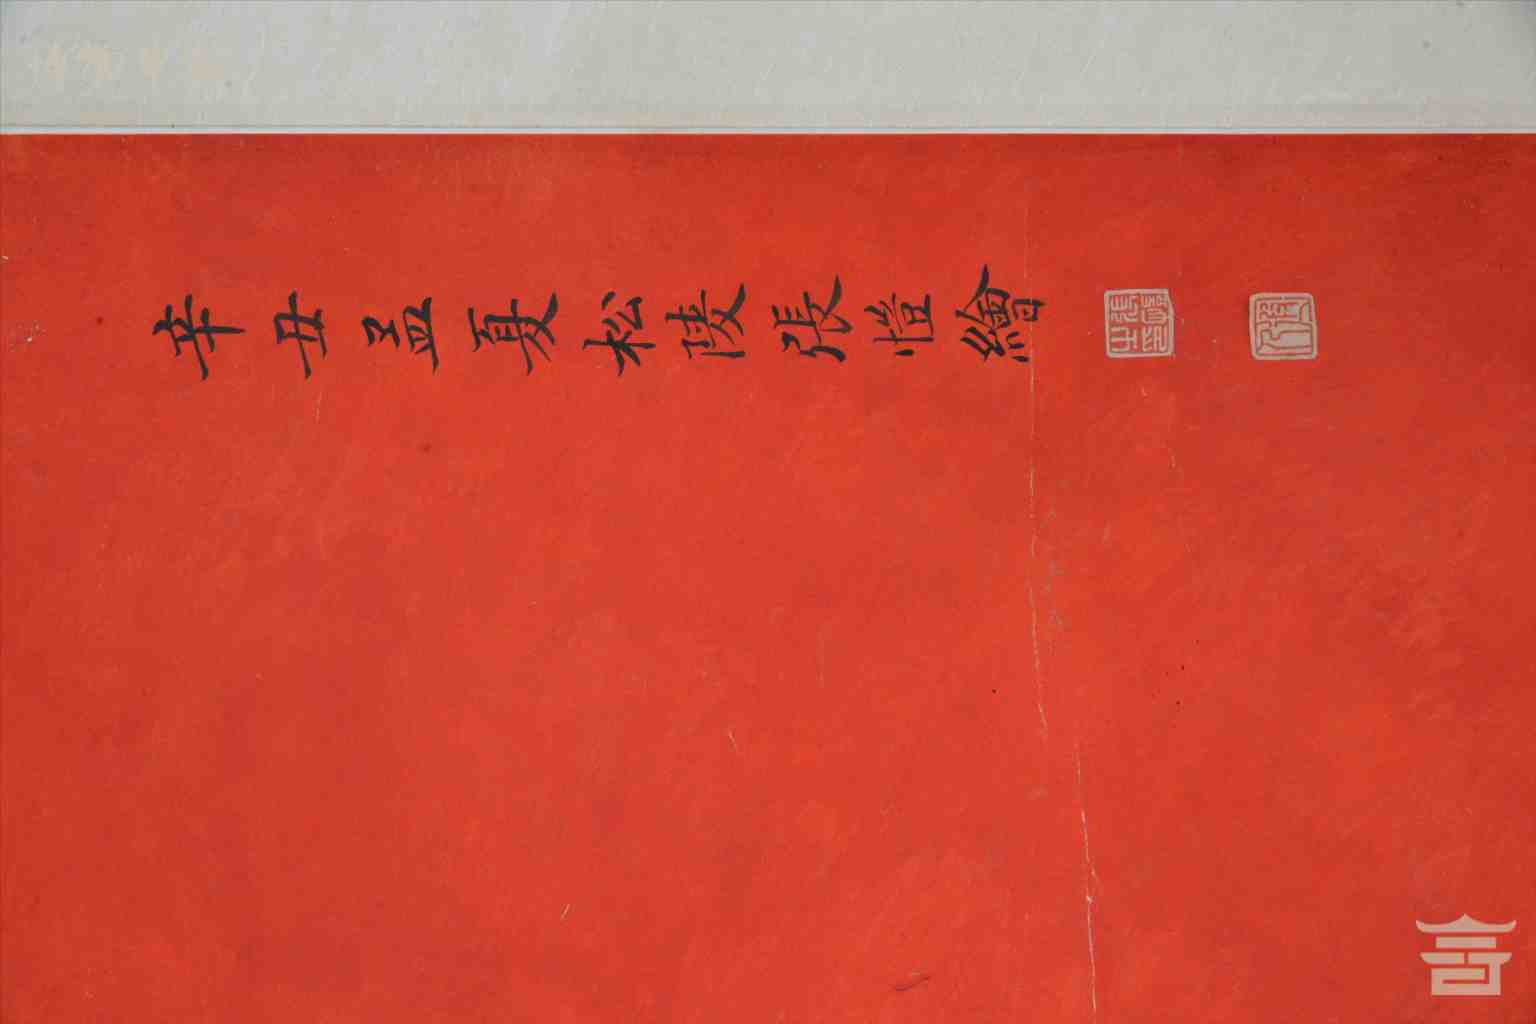 辛丑孟夏松陵張愷繪